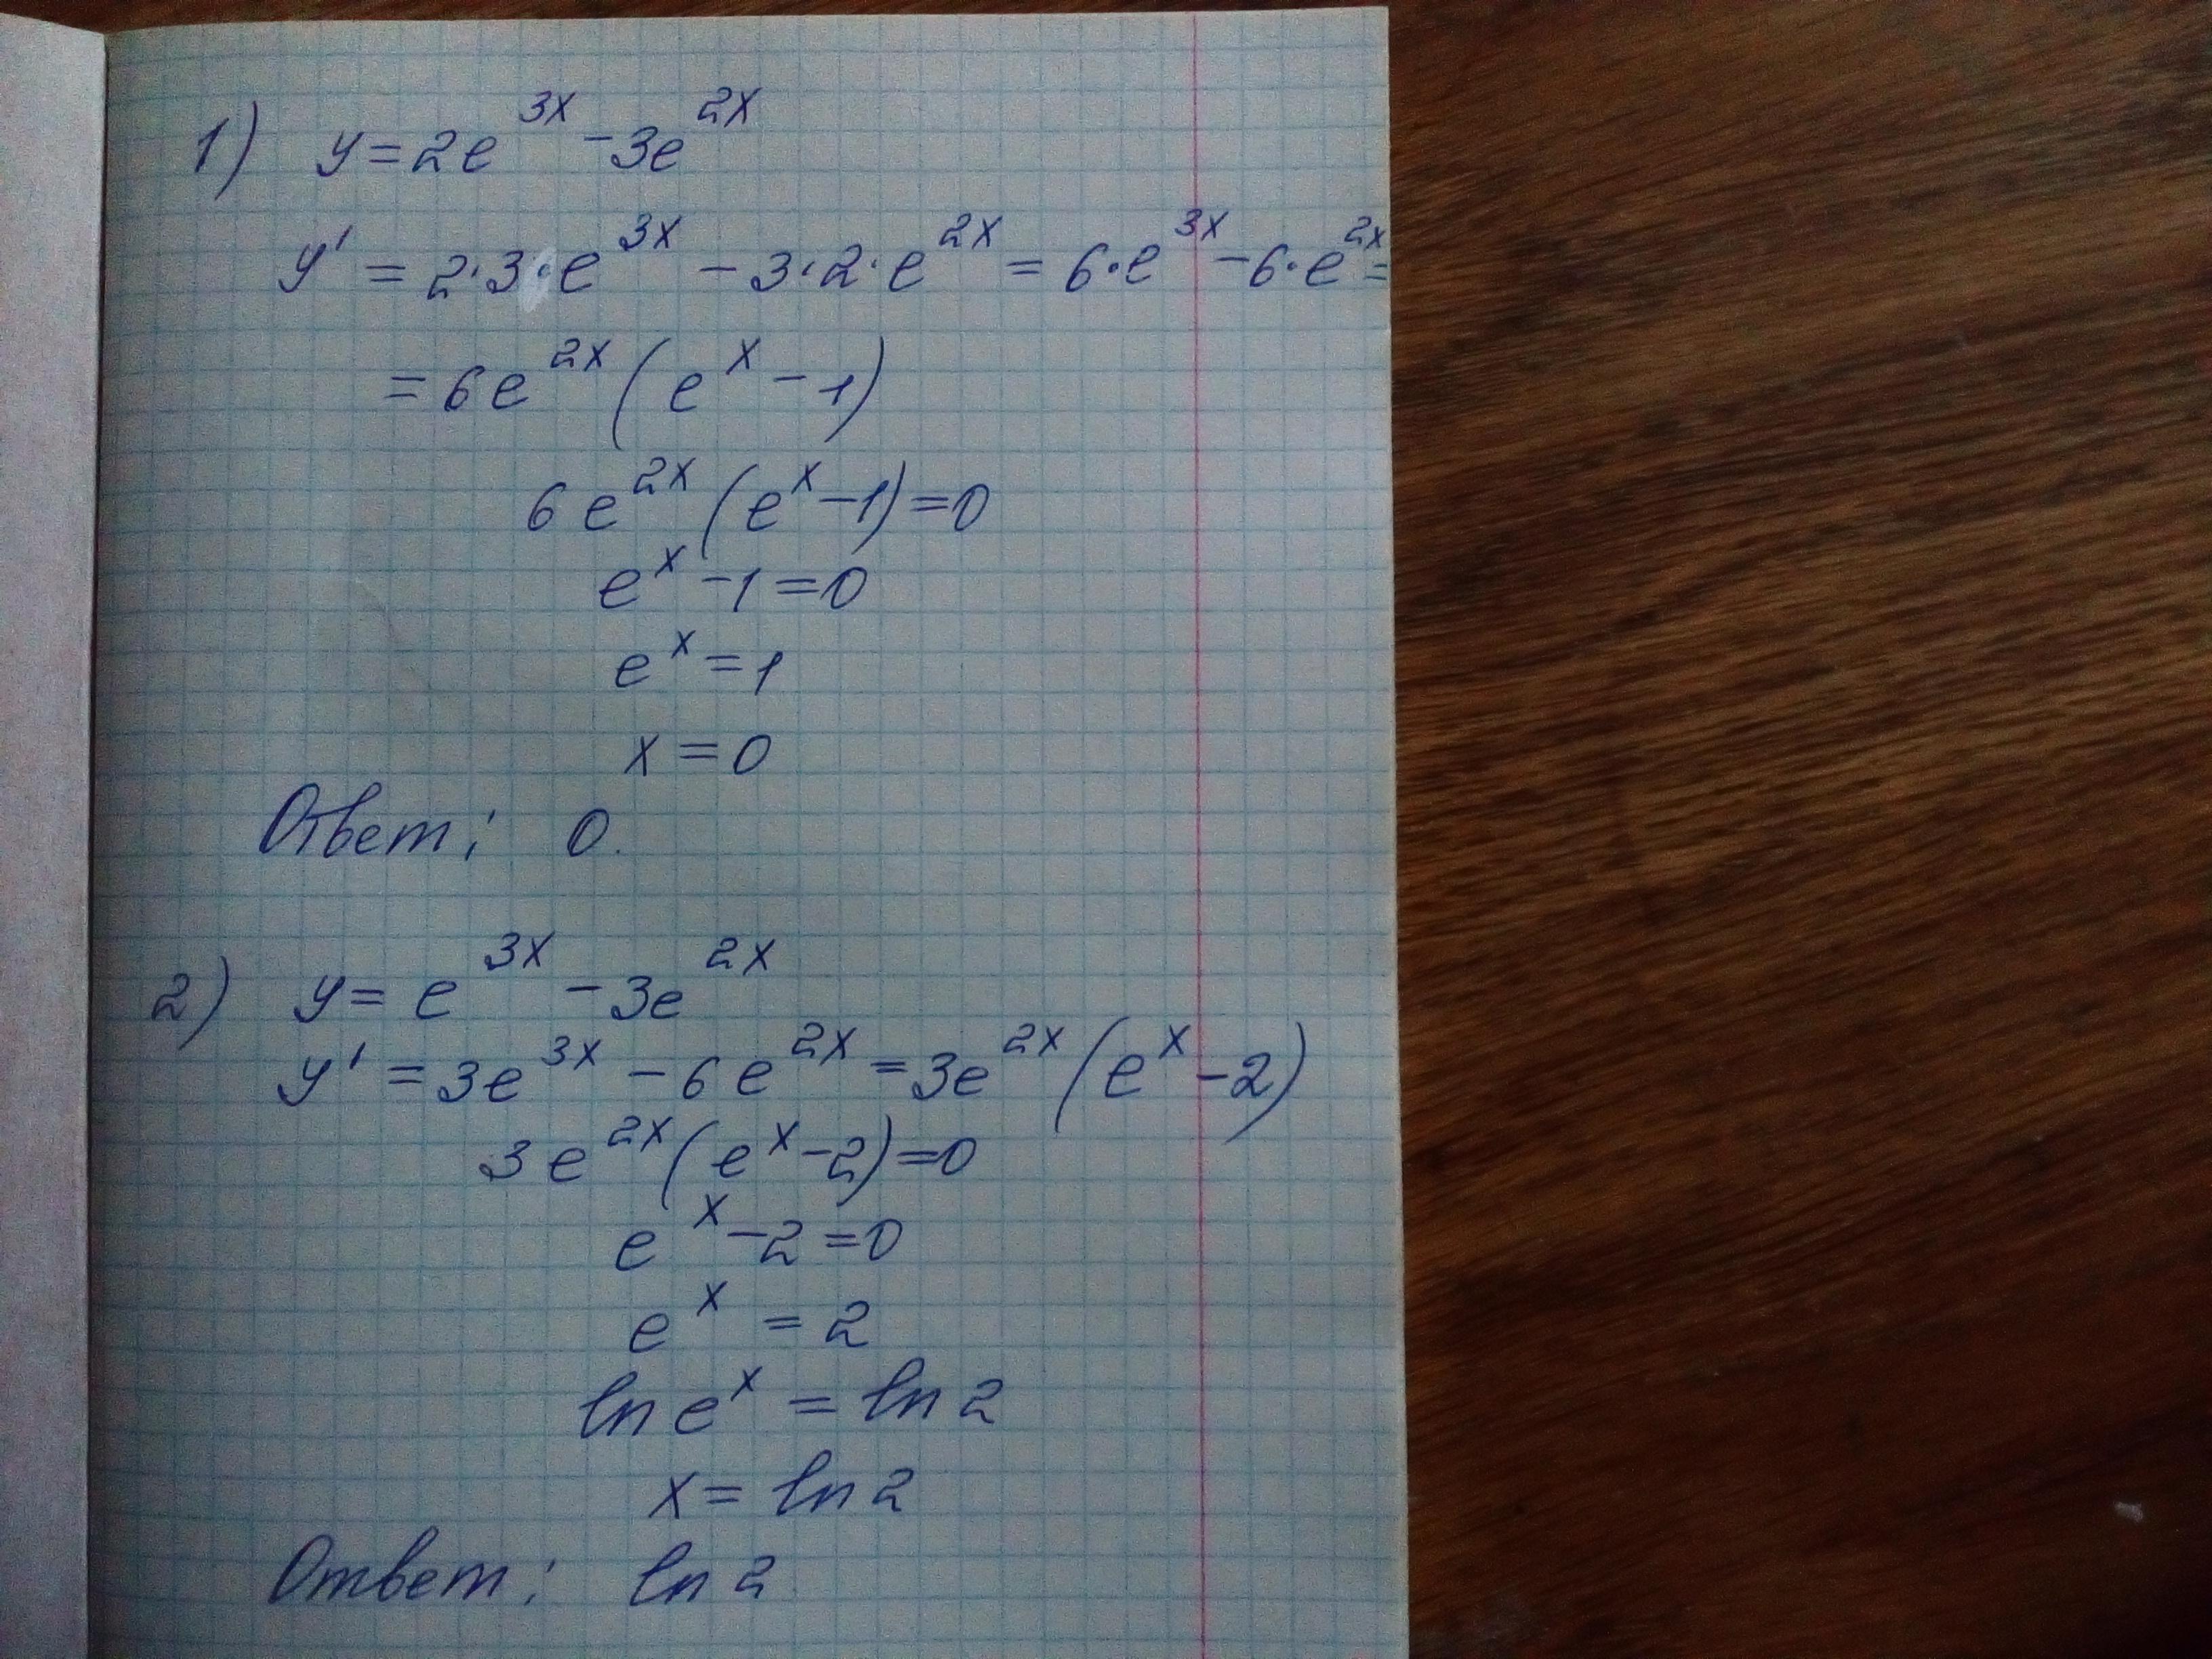 1) y = 2e^{3x} - 3e^{2x}
y' = 2·3·e^{3x} - 3·2·e^{2x} = 6·e^{3x} - 6·e^{2x} =
= 6e^{2x} (e^x - 1)
6e^{2x} (e^x - 1) = 0
e^x - 1 = 0
e^x = 1
x = 0
Ответ: 0.
2) y = e^{3x} - 3e^{2x}
y' = 3e^{3x} - 6e^{2x} = 3e^{2x} (e^x - 2)
3e^{2x} (e^x - 2) = 0
e^x - 2 = 0
e^x = 2
ln e^x = ln 2
x = ln 2
Ответ: ln 2